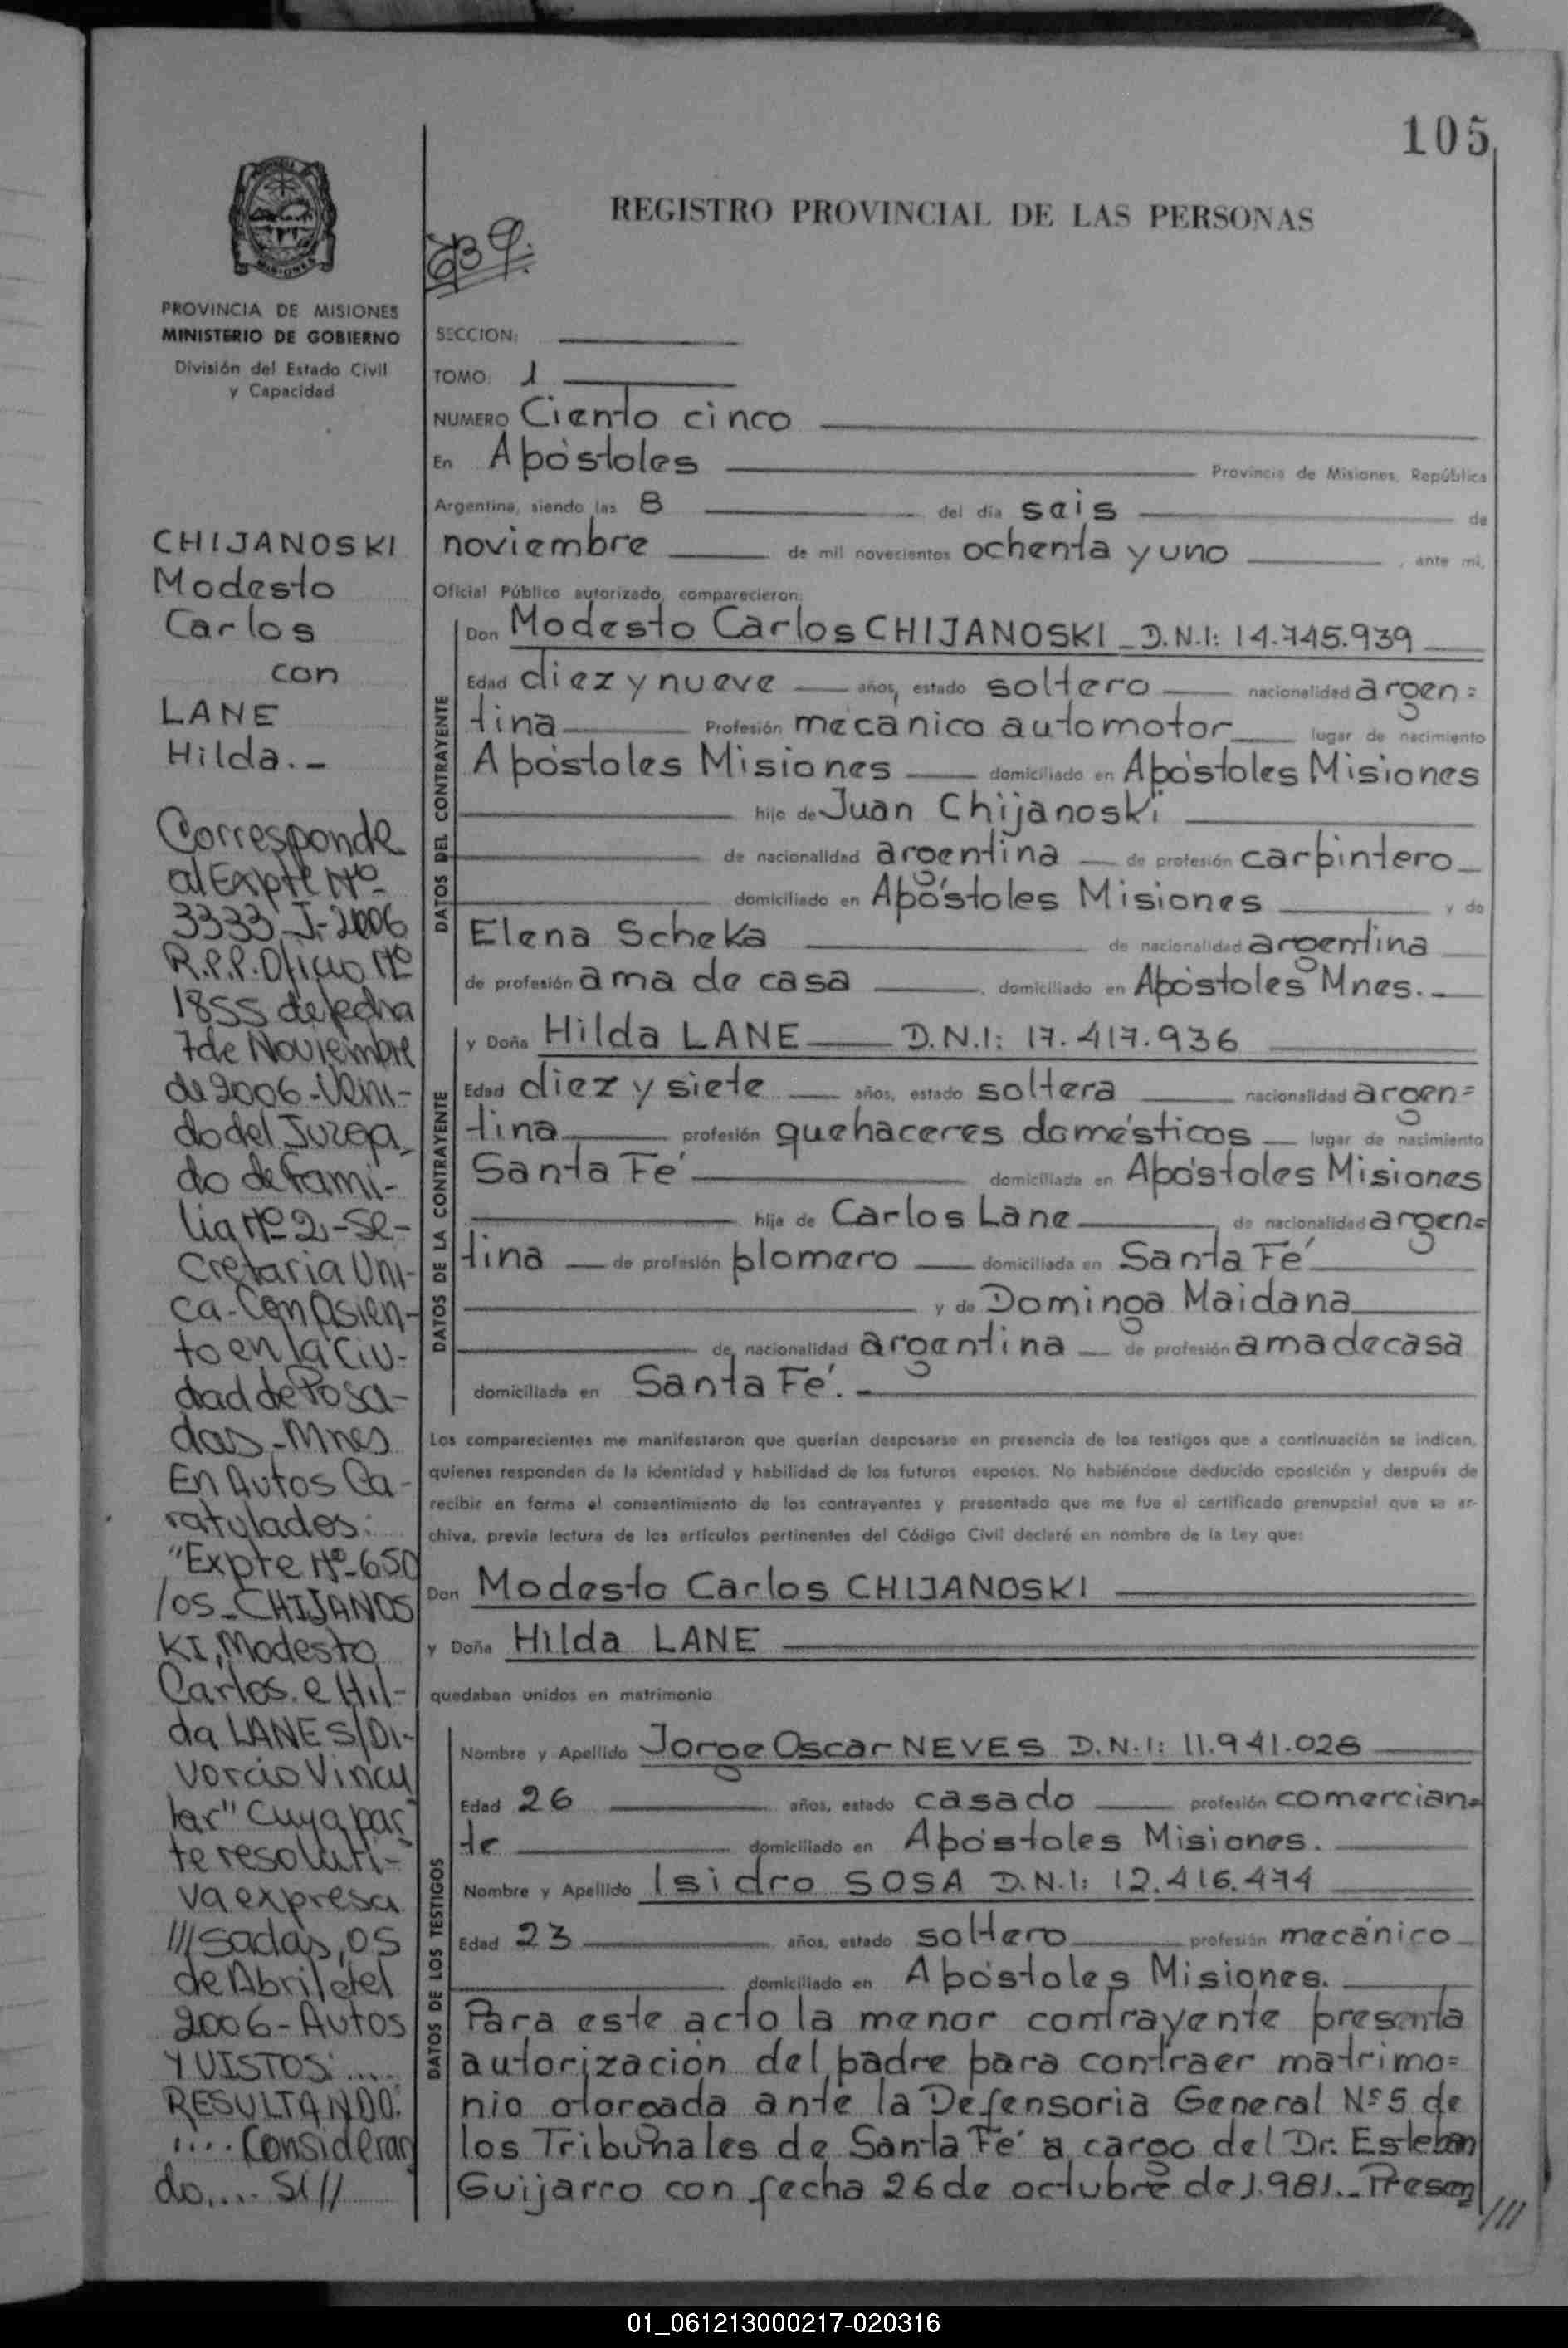 105
REGISTRO PROVINCIAL DE LAS PERSONAS
639
MISIONES
PROVINCIA DE MISIONES
MINISTERIO DE GOBIERNO
División del Estado Civil
y Capacidad
SECCION:
TOMO: 1
NUMERO Ciento cinco
En Apóstoles Provincia de Misiones, República
Argentina, siendo las 8 del día seis de
noviembre de mil novecientos ochenta y uno , ante mi,
Oficial Público autorizado, comparecieron:
CHIJANOSKI
Modesto
Carlos
con
LANE
Hilda.-
Corresponde
al Expte Nº
3333-J-2006
R.P.P. Oficio Nº
1855 de fecha
7 de Noviembre
de 2006-Veni-
do del Juzga-
do de Fami-
lia Nº 2-Se-
cretaria Uni-
ca-Con Asien-
to en la Ciu-
dad de Posa-
das-Mnes
En Autos Ca-
ratulados:
"Expte Nº-650
/05-CHIJANOS
KI, Modesto
Carlos e Hil-
da LANE S/Di-
vorcio Vincu
lar" Cuya par-
te resoluti-
va expresa
///sadas, 05
de Abril del
2006-Autos
Y VISTOS:.....
RESULTANDO:
.... Consideran
do.... SI//
DATOS DEL CONTRAYENTE
Don Modesto Carlos CHIJANOSKI - D.N.I: 14.745.939
Edad diez y nueve años, estado soltero nacionalidad argen=
tina Profesión mecánico automotor lugar de nacimiento
Apóstoles Misiones domiciliado en Apóstoles Misiones
hijo de Juan Chijanoski
de nacionalidad argentina de profesión carpintero
domiciliado en Apóstoles Misiones y de
Elena Scheka de nacionalidad argentina
de profesión ama de casa , domiciliado en Apóstoles Mnes.-
DATOS DE LA CONTRAYENTE
y Doña Hilda LANE D.N.I: 17.417.936
Edad diez y siete años, estado soltera nacionalidad argen=
tina profesión quehaceres domésticos lugar de nacimiento
Santa Fé domiciliada en Apóstoles Misiones
hija de Carlos Lane , de nacionalidad argen=
tina de profesión plomero domiciliada en Santa Fé
y de Dominga Maidana
de nacionalidad argentina de profesión ama de casa
domiciliada en Santa Fé.-
Los comparecientes me manifestaron que querían desposarse en presencia de los testigos que a continuación se indican,
quienes responden de la identidad y habilidad de los futuros esposos. No habiéndose deducido oposición y después de
recibir en forma el consentimiento de los contrayentes y presentado que me fue el certificado prenupcial que se ar-
chiva, previa lectura de los artículos pertinentes del Código Civil declaré en nombre de la Ley que:
Don Modesto Carlos CHIJANOSKI
y Doña Hilda LANE
quedaban unidos en matrimonio
DATOS DE LOS TESTIGOS
Nombre y Apellido Jorge Oscar NEVES D.N.I: 11.941.026
Edad 26 años, estado casado profesión comercian=
te domiciliado en Apóstoles Misiones.
Nombre y Apellido Isidro SOSA D.N.I: 12.416.474
Edad 23 años, estado soltero profesión mecánico
domiciliado en Apóstoles Misiones.
Para este acto la menor contrayente presenta
autorización del padre para contraer matrimo=
nio otorgada ante la Defensoria General Nº5 de
los Tribunales de Santa Fé a cargo del Dr. Esteban
Guijarro con fecha 26 de octubre de 1.981.- Presen
///
01_061213000217-020316